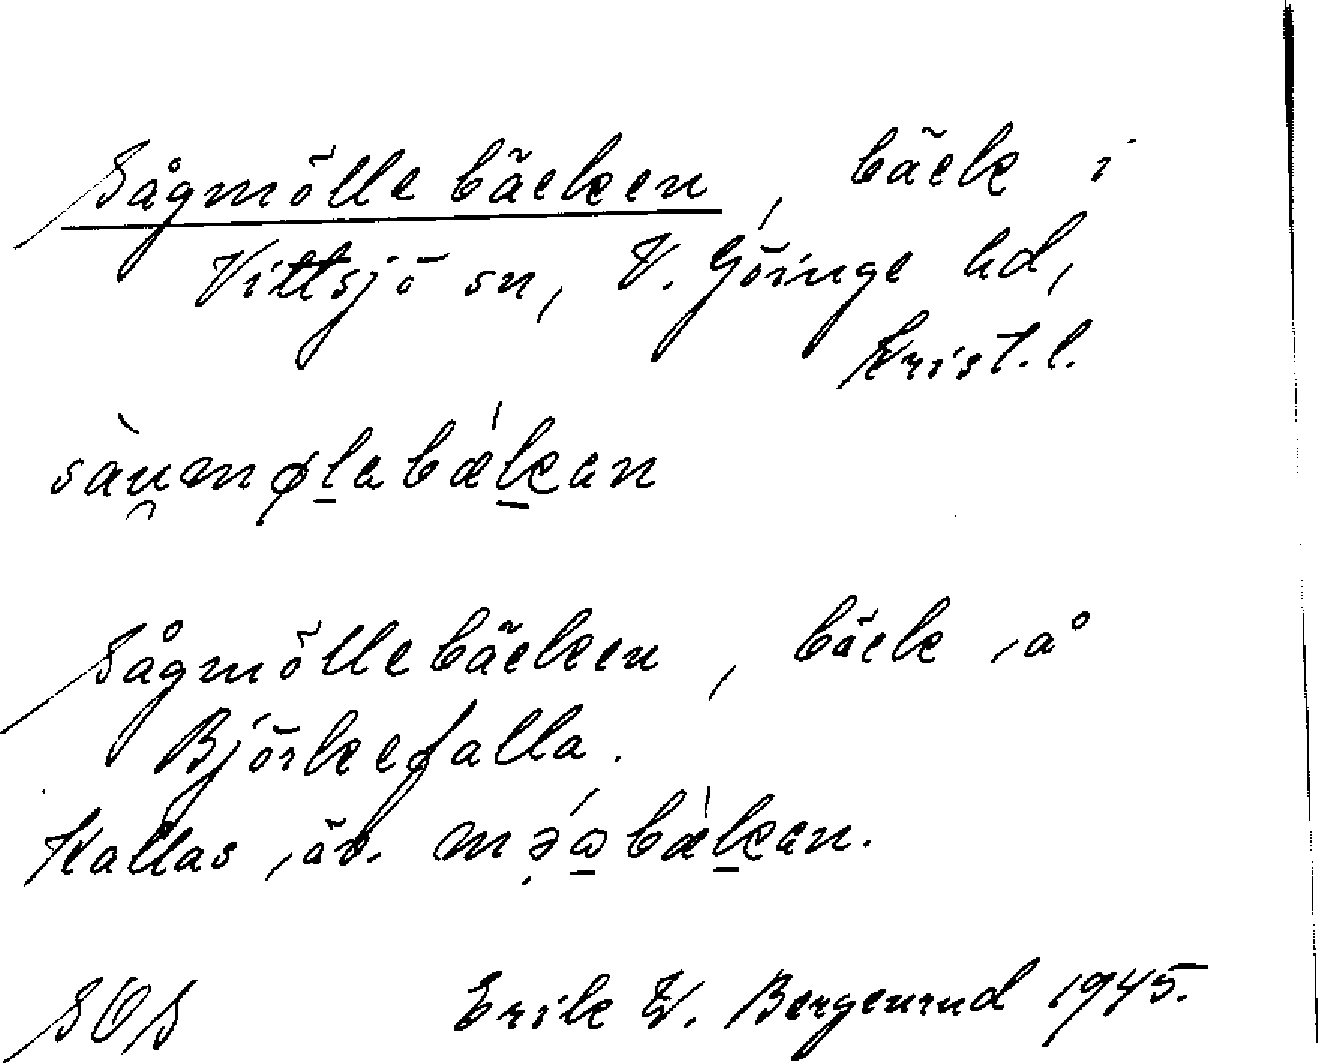 Sågmöllebäcken, bäck i
Vittsjö sn, V. Göinge hd,
Krist. l.
sàu̯møl̲abæ̀k̲an
Sågmöllebäcken, bäck å
Björkefalla.
Kallas äv.
SOS Erik W. Bergenrud 1945.